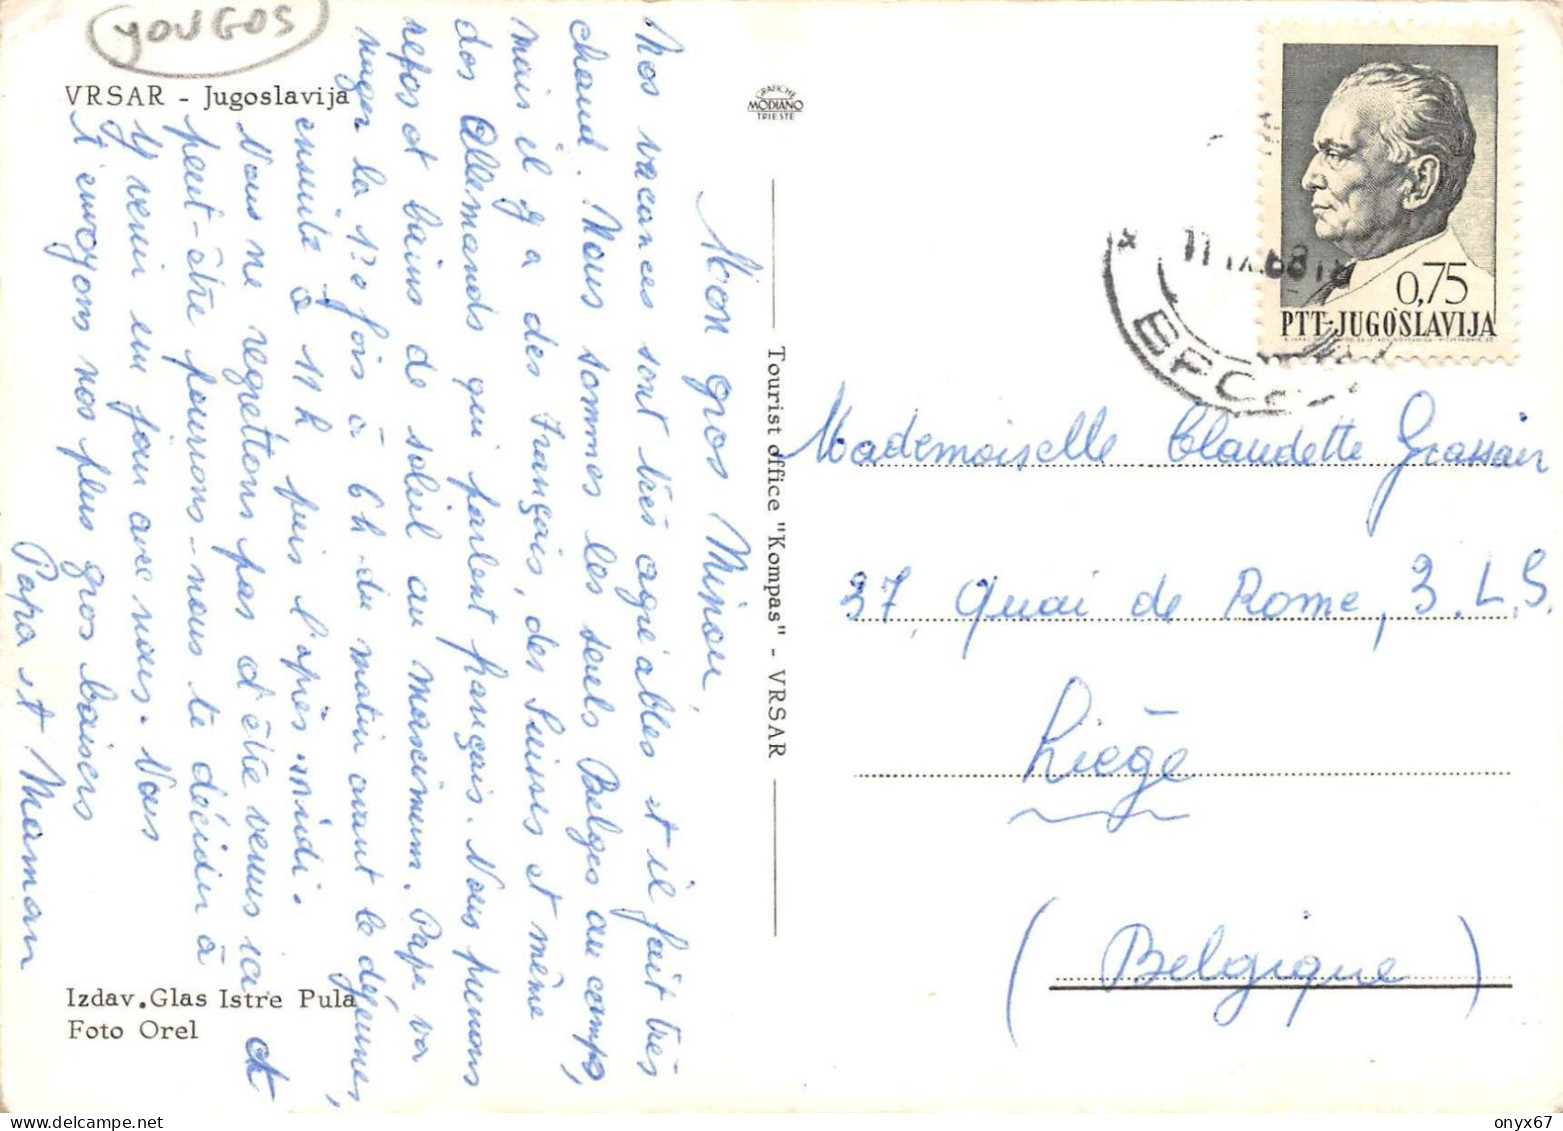 YOUGOS
VRSAR - Jugoslavija
GRAFICHE
MODIANO
TRIESTE
Mon gros Minou,
Nos vacances sont très agréables et il fait très
chaud. Nous sommes les seuls Belges au camps,
mais il y a des Français, des Suisses et même
des Allemands qui parlent français. Nous prenons
repos et bains de soleil au maximum. Papa va
nager la 1re fois à 6h. du matin avant le déjeuner,
ensuite à 11h puis l'après-midi.
Nous ne regrettons pas d'être venus ici et
peut-être pourrons-nous te décider à
y venir un jour avec nous. Nous
t'envoyons nos plus gros baisers
Papa et Maman
Izdav. Glas Istre Pula
Foto Orel
Tourist office "Kompas" - VRSAR
11.IX.68.18
ВРСАР
0,75
PTT-JUGOSLAVIJA
Mademoiselle Claudette
37, Quai de Rome, 3. L. S.
Liège
(Belgique)
onyx67